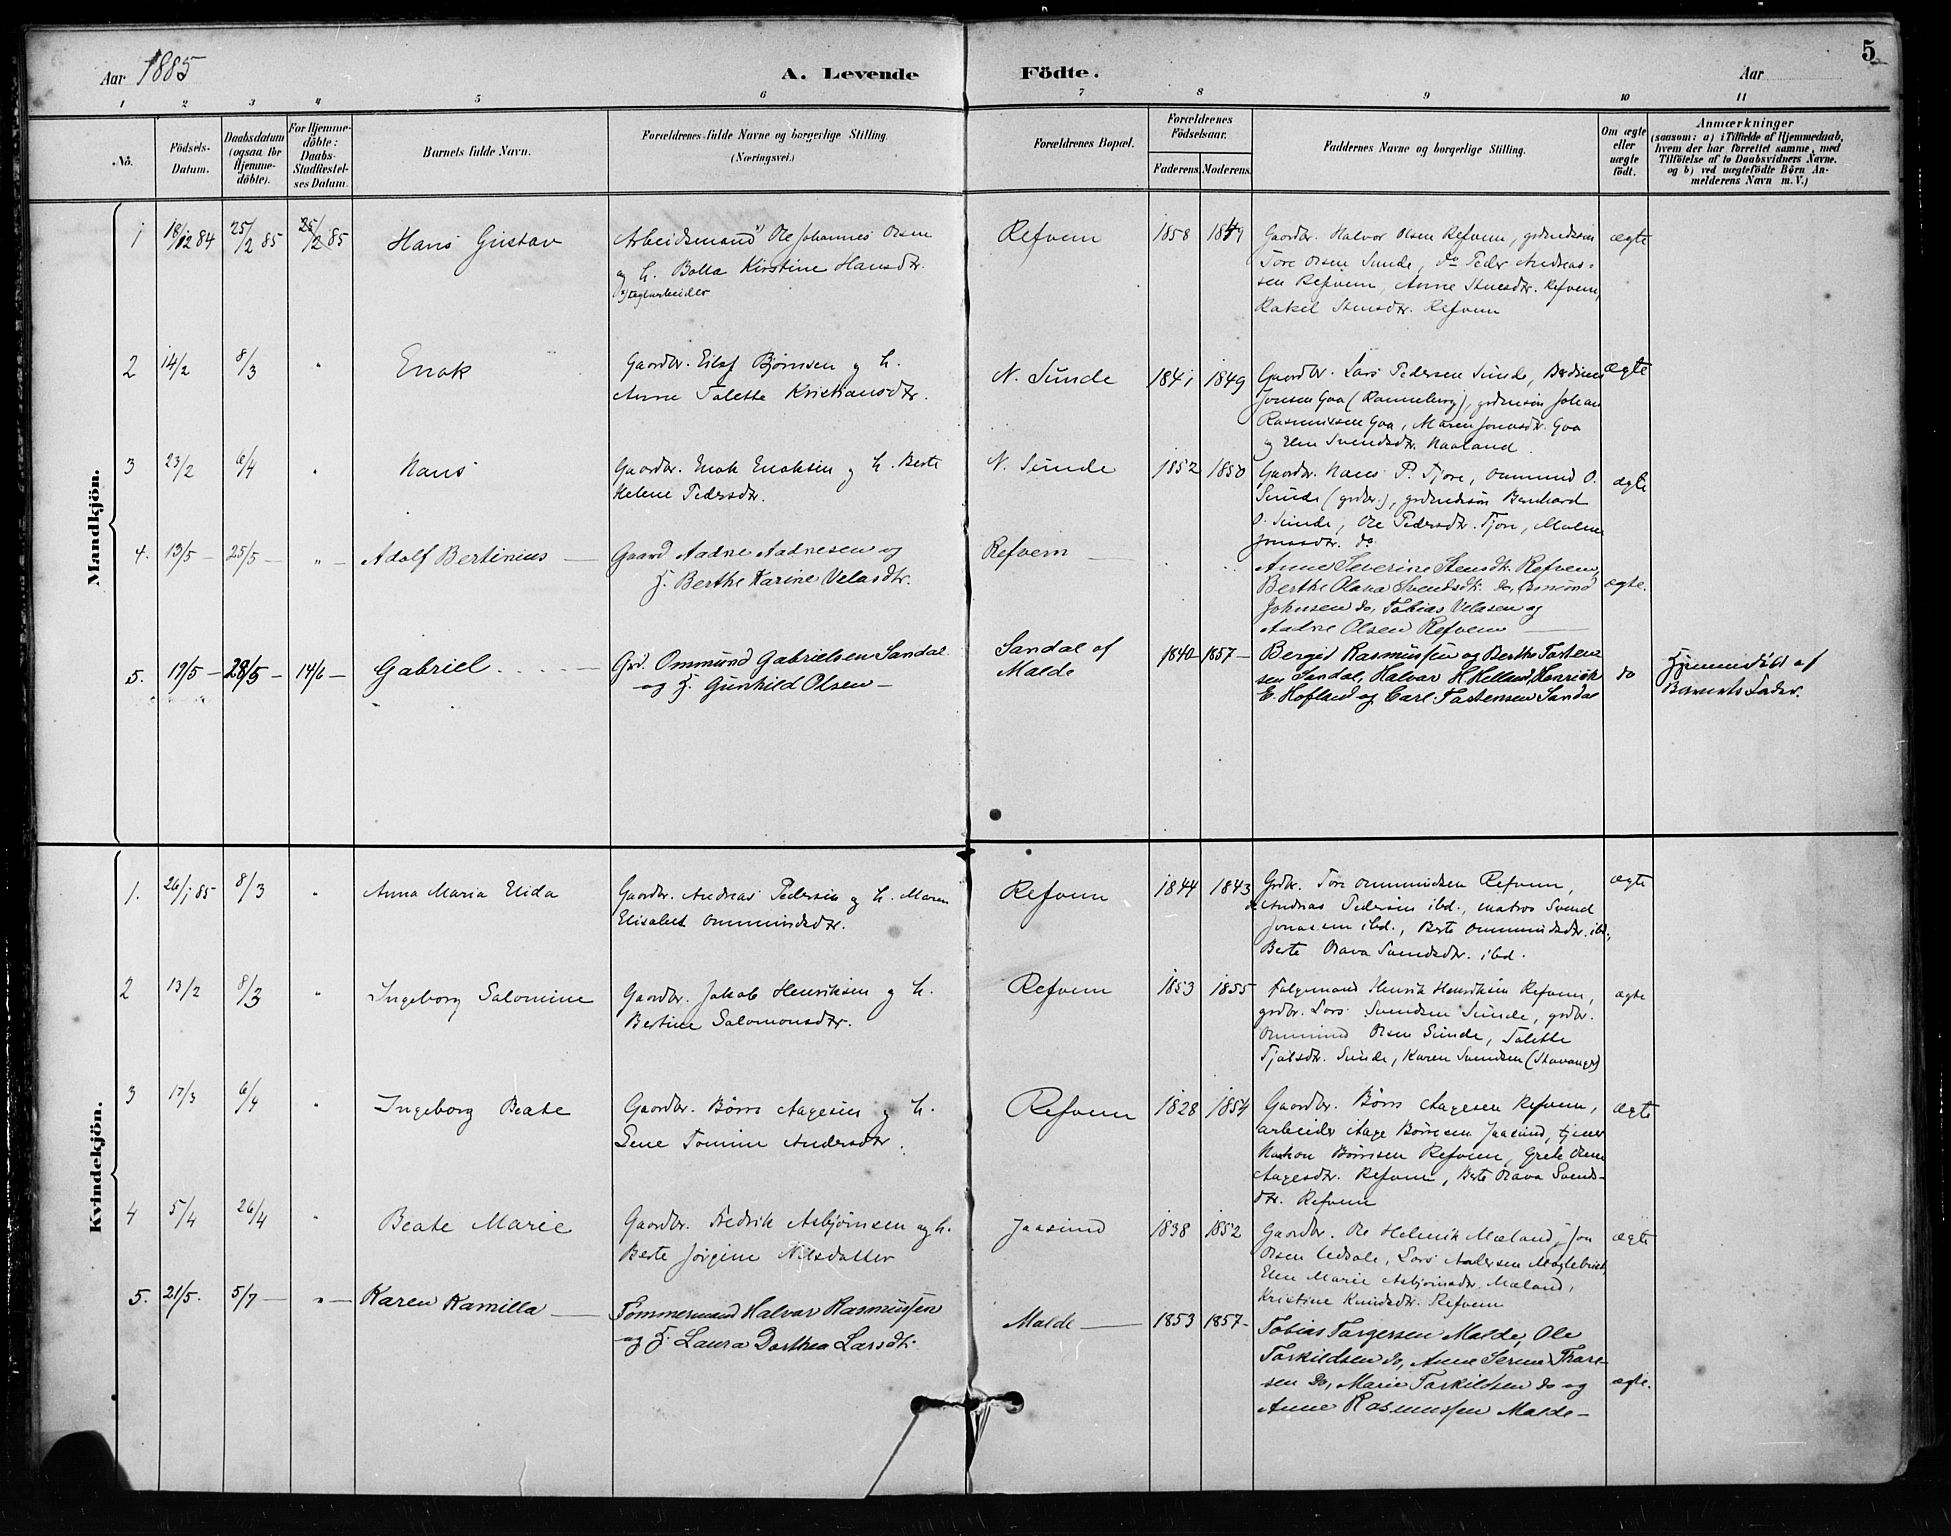 Aar 1885
A. Levende Födte.
Aar
5
1 2 3 4 5 6 7 8 9 10 11
No.
Födsels-Datum.
Daabsdatum (ogsaa for Hjemme-döbte).
For Hjemme-döbte: Daabs-Stadfæstel-ses Datum.
Barnets fulde Navn.
Forældrenes fulde Navne og borgerlige Stilling.
(Næringsvei.)
Forældrenes Bopæl.
Forældrenes Födselsaar.
Faderens. Moderens.
Faddernes Navne og borgerlige Stilling.
Om ægte eller uægte født.
Anmærkninger
(saasom: a) i Tilfælde af Hjemmedaab,
hvem der har forrettet samme, med
Tilföielse af to Daabsvidners Navne.
og b) ved uægtefödte Börn An-
melderens Navn m. V.)
Mandkjön.
1 18/12 84 25/2 85 25/2 85 Hans Gustav
Arbeidsmand Ole Johannes Olsen
og h. Bolla Kirstine Hansdtr.
Refvem 1858 1849
Gaardbr. Halvor Olsen Refvem, grdmdssøn
Tore Olsen Sunde, do Peder Andreas-
sen Refvem, Anne Stensdtr. Refvem,
Rakel Stensdtr. Refvem
ægte
2 14/2 8/3 " Enok
Gaardbr. Eilef Bjørnsen og h.
Anne Talette Kristiansdtr.
N. Sunde 1841 1849
Gaardbr. Lars Pedersen Sunde, Berdines
Jonsen Goa (Ranneberg), grdmssøn Johan
Rasmussen Goa, Maren Jonasdtr. Goa
og Elen Svendsdtr. Naaland.
ægte
3 23/2 6/4 " Hans
Gaardbr. Enok Enoksen og h. Berte
Helene Pedersdtr.
N. Sunde 1852 1850
Gaardbr. Hans P. Tjore, Ommund O.
Sunde (grdbr.), grdmdssøn Bernhard
O. Sunde, Ole Pedersdtr. Tjore, Malene
Jonasdtr. do
ægte
4. 13/5 – 25/5 – " – Adolf Bertinius –
Gaard. Aadne Aadnesen og
H. Berthe Karine Velasdtr.
Refvem
Anne Severine Stensdtr. Refvem,
Berthe Olava Svendsdtr. do, Asmund
Johnsen do, Tobias Velasen og
Aadne Olsen Refvem –
ægte.
5. 19/5 – 28/5 – 14/6 – Gabriel
Grd. Ommund Gabrielsen Sandal
– og H. Gunhild Olsen –
Sandal af
Malde
1840 – 1857 –
Bergit Rasmussen og Berthe Tarten-
sen Sandal, Halvar H. Helland, Henrik
E. Hofland og Carl Tartensen Sandal
do
Hjemmedøbt af
Barnets Fader.
Kvindekjön.
1. 26/1 85 8/3 " Anna Maria Elida
Gaardbr. Andreas Pedersen og h. Maren
Elisabet Ommundsdtr.
Refvem 1844 1843
Grdbr. Tore Ommundsen Refvem,
Andreas Pedersen ibd., matros Svend
Jonassen ibd., Berte Ommundsdtr. ibd.,
Berte Olava Svendsdtr. ibd.
ægte
2 13/2 8/3 " Ingeborg Salomine
Gaardbr. Jakob Henriksen og h.
Bertine Salomonsdtr.
Refvem 1853 1855
Følgemand Henrik Henriksen Refvem,
grdbr. Lars Svendsen Sunde, grdbr.
Ommund Olsen Sunde, Talette
Sunde, Karen Svendsen (Stavanger)
ægte
3 17/3 6/4 " Ingeborg Beate
Gaardbr. Børre Aagesen og h.
Lene Tomine Andersdtr.
Refvem 1828 1854
Gaardbr. Børre Aagesen Refvem,
arbeider Aage Børresen Jaasund, tjener
Haakon Børresen Refvem, Grete Oline
Aagesdtr. Refvem, Berte Olava Svends-
dtr. Refvem
ægte
4 5/4 26/4 " Beate Marie
Gaardbr. Fredrik Asbjørnsen og h.
Berte Jørgine Nilsdatter
Jaasund 1838 1852
Gaardbr. Ole Helmik Mæland, Jon
Olsen, Lars Andersen Møglebust,
Elen Marie Asbjørnsdtr. Mæland,
Kristine Knudsdtr. Refvem
ægte
5. 21/5. 5/7 – " – Karen Kamilla –
Tømmermand Halvar Rasmussen
– og H. Laura Dorthea Larsdtr.
Malde – 1853 1857 –
Tobias Targersen Malde, Ole
Tarkildsen do, Anne Serine Thore-
sen do, Marie Tarkildsen do og
Anne Rasmussen Malde –
ægte.